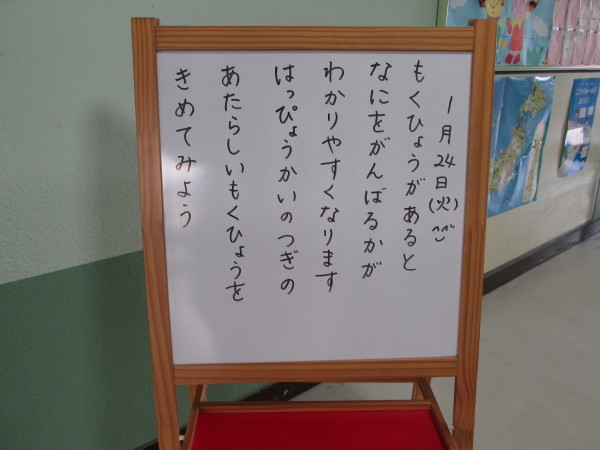 1月24日(火)^^
もくひょうがあると
なにをがんばるかが
わかりやすくなります
はっぴょうかいのつぎの
あたらしいもくひょうを
きめてみよう